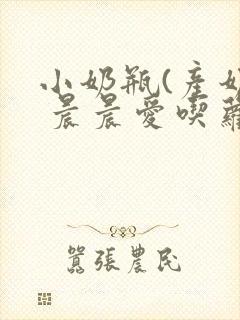 小奶瓶(產奶
晨晨愛喫蘿
囂張農民